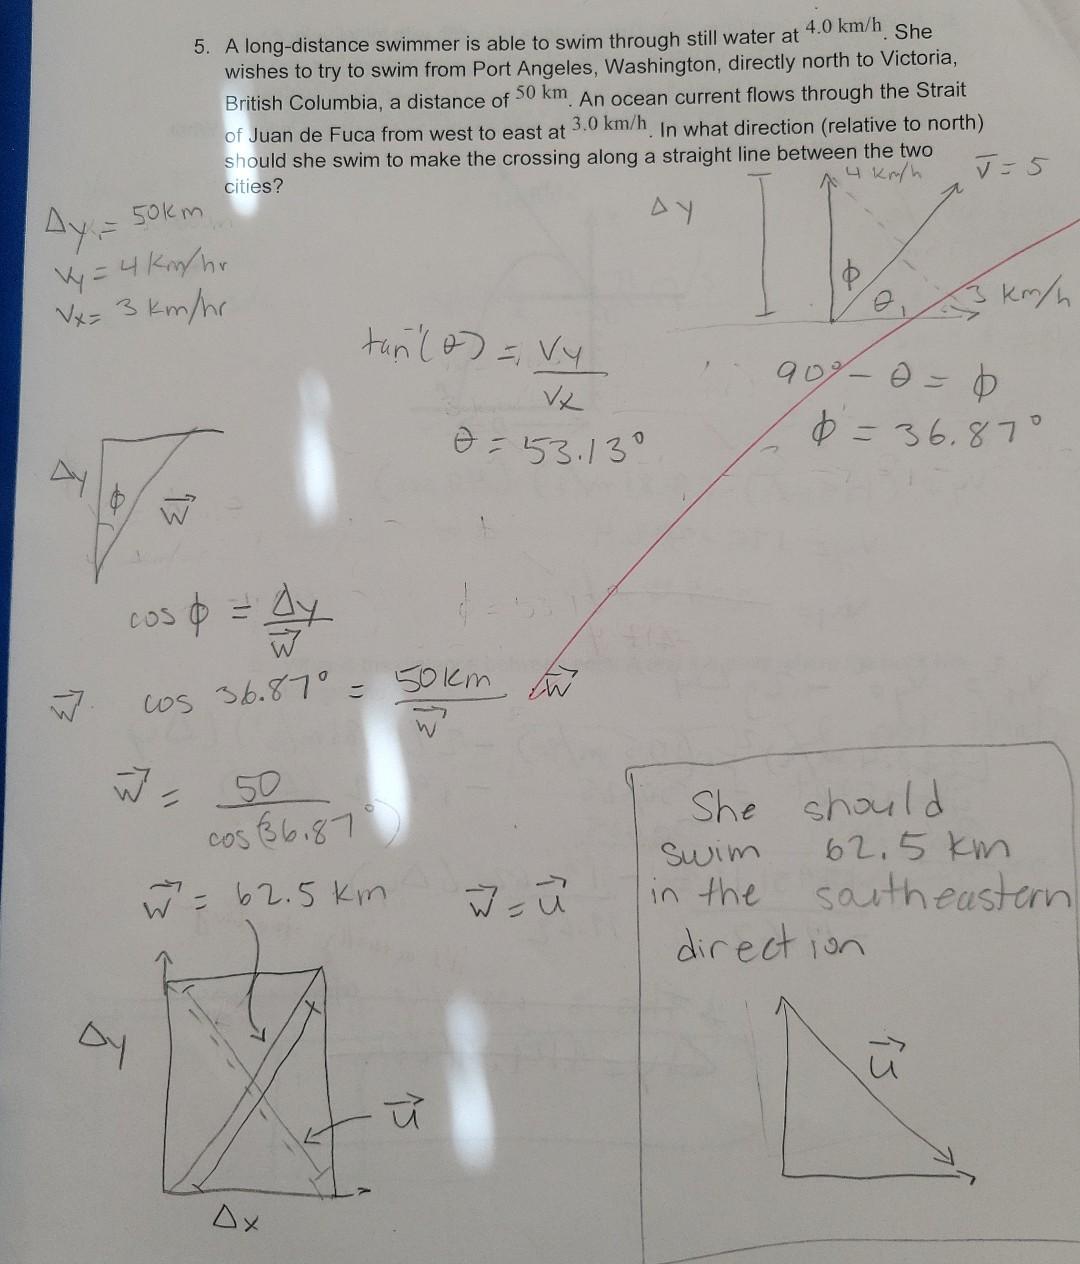 5. A long-distance swimmer is able to swim through still water at 4.0 km/h. She
wishes to try to swim from Port Angeles, Washington, directly north to Victoria,
British Columbia, a distance of 50 km. An ocean current flows through the Strait
of Juan de Fuca from west to east at 3.0 km/h. In what direction (relative to north)
should she swim to make the crossing along a straight line between the two
cities?
Δy = 50km
Vy = 4 km/hr
Vx = 3 km/hr
Δy
4 km/h
V⃗ = 5
ϕ
θ
3 km/h
tan⁻¹(θ) = Vy/Vx
θ = 53.13°
90° - θ = ϕ
ϕ = 36.87°
Δy
ϕ
w⃗
cos ϕ = Δy/w⃗
w⃗ cos 36.87° = 50km/w⃗ w⃗
w⃗ = 50/cos(36.87°)
w⃗ = 62.5 km
w⃗ = u⃗
Δy
u⃗
Δx
She should
swim 62.5 km
in the southeastern
direction
u⃗